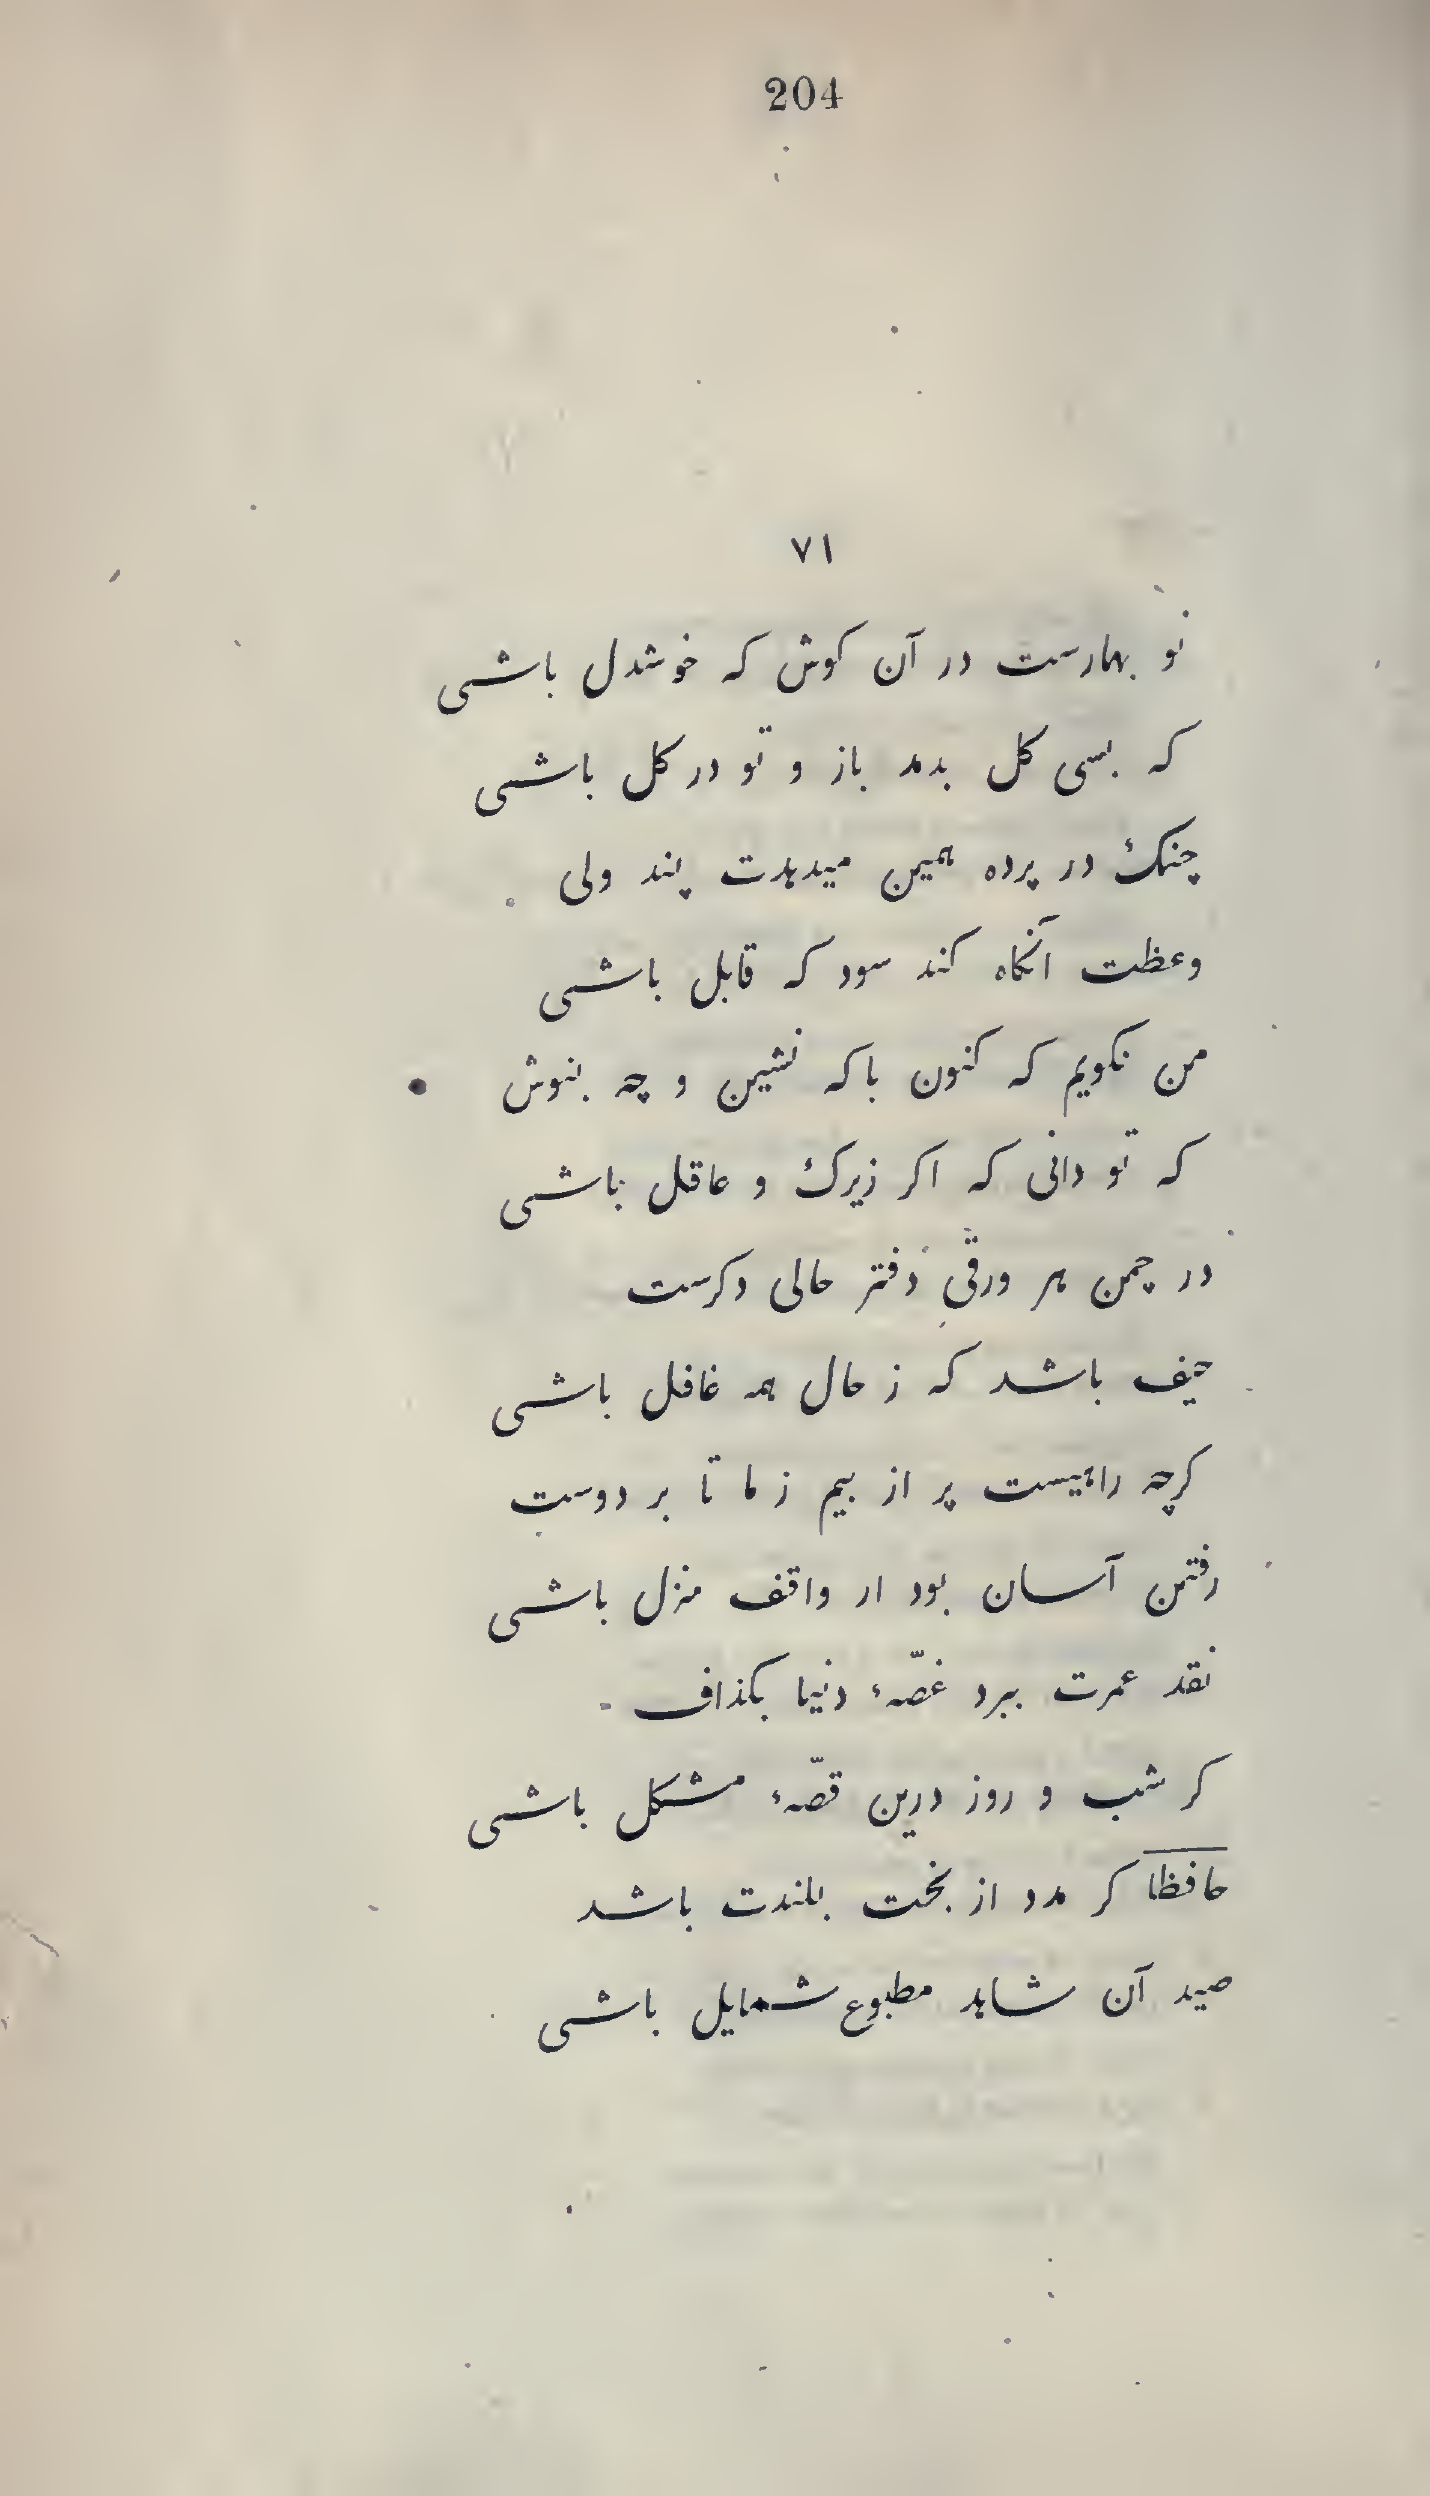 204
٧١
نو بهارست در آن کوش که خوشدل باشی
که بسی کل بدمد باز و تو در کل باشی
چنک در پرده همین میدهدت پند ولی
وعظت آنکاه کند سود که قابل باشی
من نکویم که کنون باکه نشین و چه بنوش
که تو دانی که اکر زیرک و عاقل باشی
در چمن هر ورقی دفتر حالی دکرست
حیف باشد که ز حال همه غافل باشی
کرچه راهیست پر از بیم ز ما تا بر دوست
رفتن آسان بود ار واقف منزل باشی
نقد عمرت ببرد غصّهٔ دنیا بکذاف
کر شب و روز درین قصّهٔ مشکل باشی
حافظا کر مدد از بخت بلندت باشد
صید آن شاهد مطبوع شمایل باشی